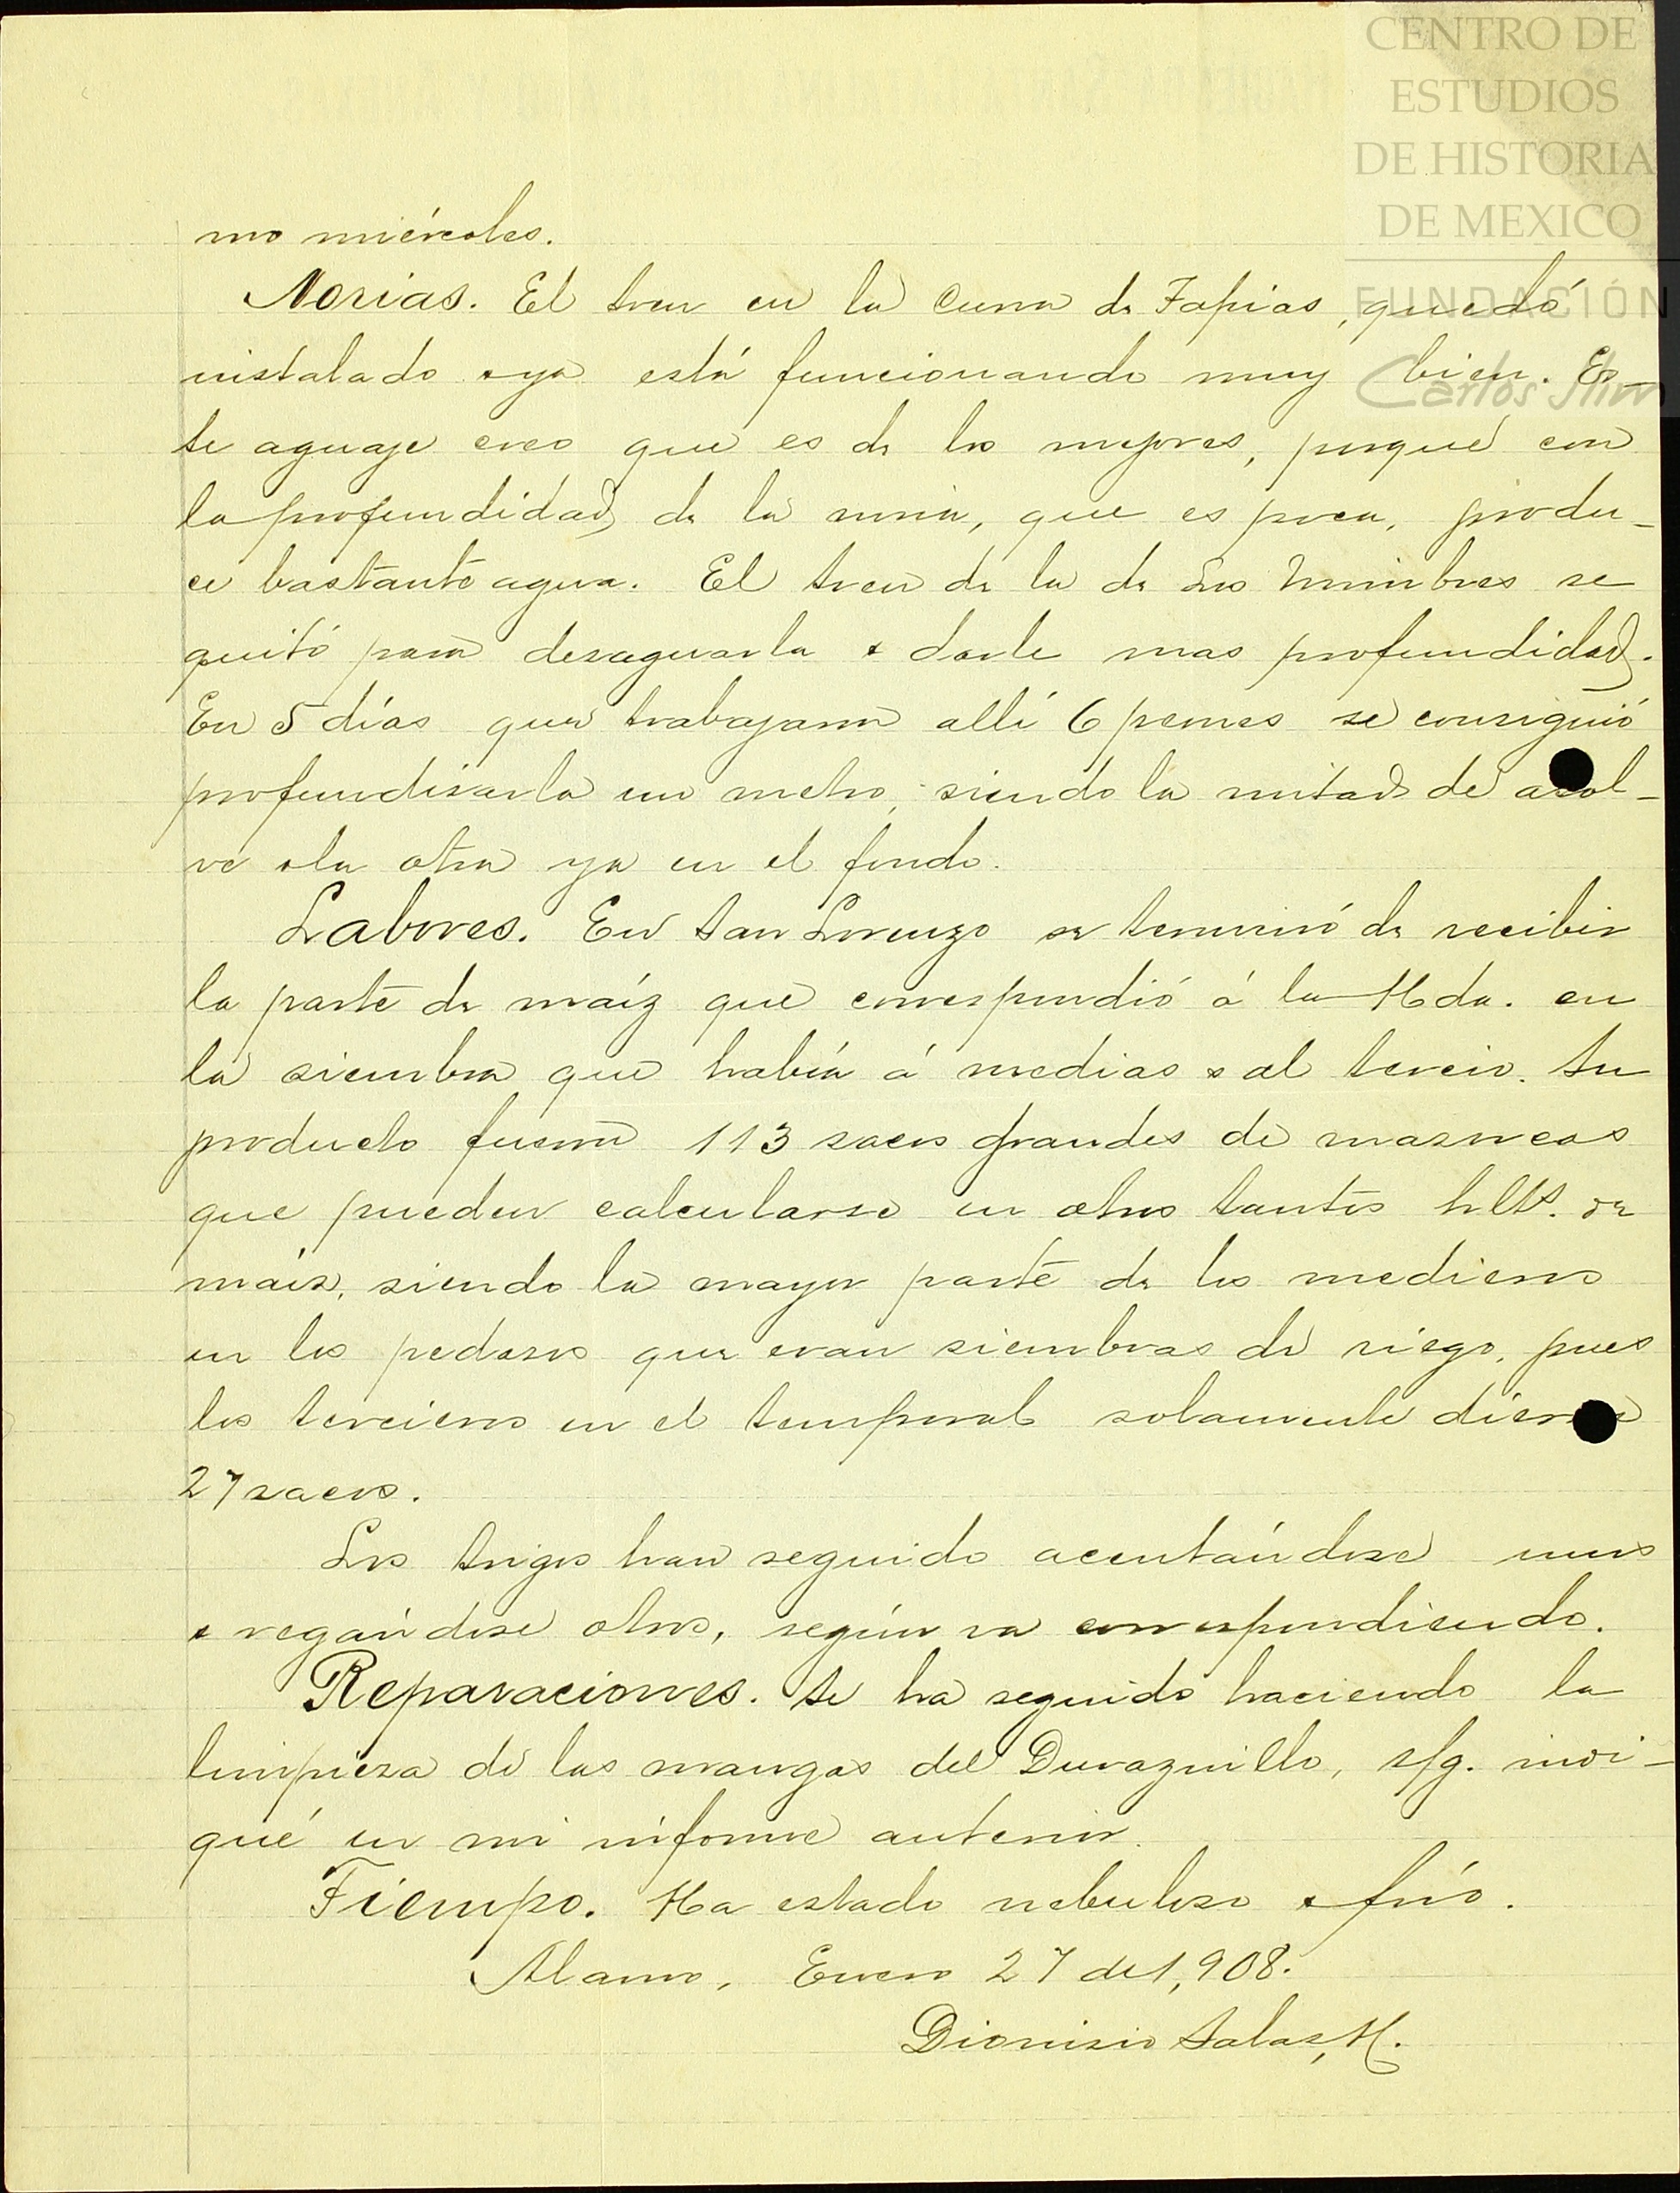 CENTRO DE
ESTUDIOS
DE HISTORIA
DE MEXICO
FUNDACIÓN
Carlos Slim
mo miércoles.
Norias. El tren en la Cuna de Tapias, quedó
instalado y ya está funcionando muy bien. Es-
te aguaje creo que es de los mejores, porque con
la profundidad de la noria, que es poca, produ-
ce bastante agua. El tren de la de Los Mimbres se
quitó para desaguarla y darle mas profundidad.
En 5 días que trabajaron allí 6 peones se consiguió
profundisarla un metro, siendo la mitad de asol-
ve y la otra ya en el fondo.
Labores. En San Lorenzo se terminó de recibir
la parte de maíz que correspondió á la Hda. en
la siembra que había á medias y al tercio. Su
producto fueron 113 sacos grandes de masorcas
que pueden calcularse en otros tantos hlts. de
maís, siendo la mayor parte de los medieros
en los pedasos que eran siembras de riego, pues
los tercieros en el temporal solamente dieron
27 sacos.
Los trigos han seguido acentándose unos
y regándose otros, según va correspondiendo.
Reparaciones. Se ha seguido haciendo la
limpiesa de las mangas del Duraznillo, sfg. indi-
qué en mi informe anterior.
Tiempo. Ha estado nebuloso y frío.
Alamo, Enero 27 de 1,908.
Dionisio Salas, H.